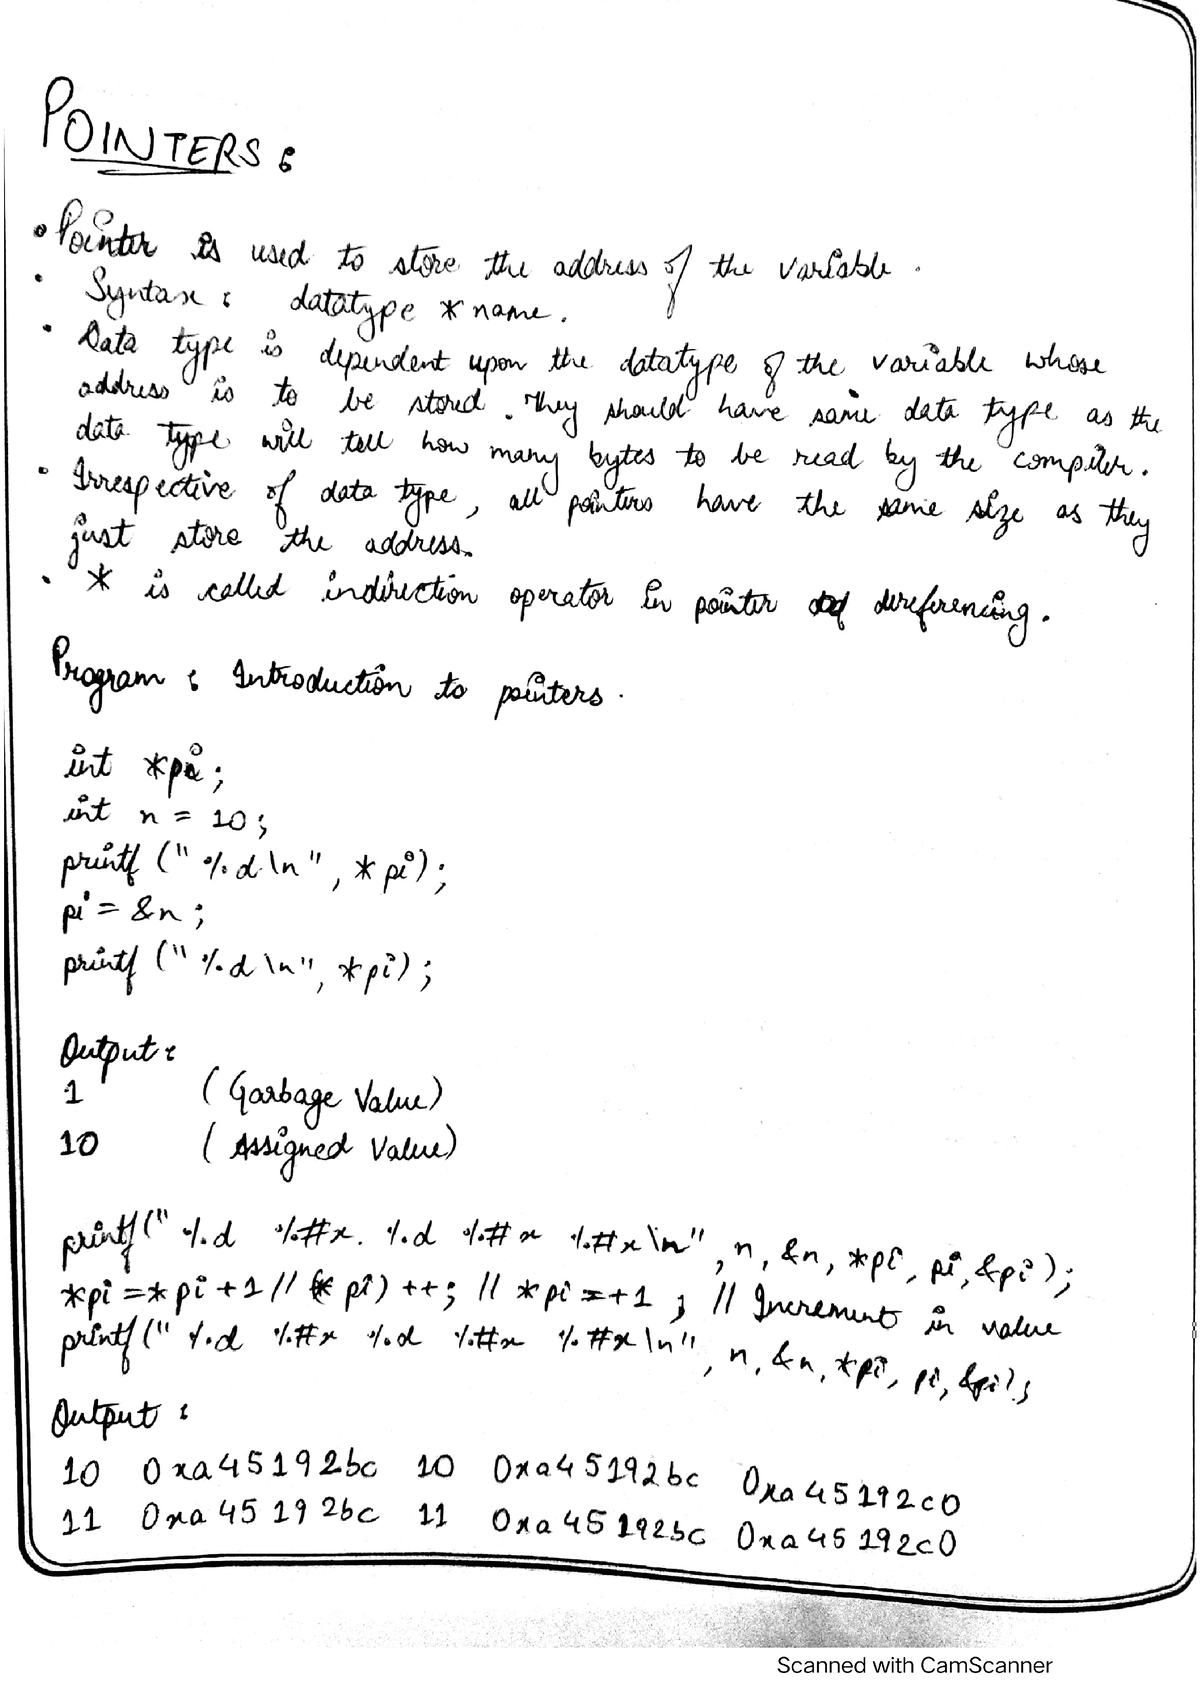 POINTERS:
• Pointer is used to store the address of the variable.
• Syntax : datatype *name.
• Data type is dependent upon the datatype of the variable whose
address is to be stored. They should have same data type as the
data type will tell how many bytes to be read by the compiler.
• Irrespective of data type, all pointers have the same size as they
just store the address.
• * is called indirection operator in pointer dereferencing.
Program : Introduction to pointers.
int *pi;
int n = 10;
printf ("%d\n", *pi);
pi = &n;
printf ("%d\n", *pi);
Output :
1 (Garbage Value)
10 (Assigned Value)
printf(" %d %#x. %d %#x %#x\n", n, &n, *pi, pi, &pi);
*pi=*pi+1 // (*pi)++; // *pi=+1 ; // Increment in value
printf(" %d %#x %d %#x %#x\n", n, &n, *pi, pi, &pi);
Output :
10 0xa45192bc 10 0xa45192bc 0xa45192c0
11 0xa45192bc 11 0xa45192bc 0xa45192c0
Scanned with CamScanner